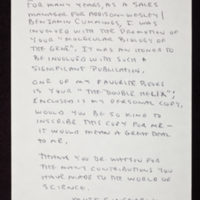 FOR MANY YEARS, AS A SALES
MANAGER FOR ADDISON-WESLEY/
BENJAMIN CUMMINGS, I WAS
INVOLVED WITH THE PROMOTION OF
YOUR "MOLECULAR BIOLOGY OF
THE GENE". IT WAS AN HONOR TO
BE INVOLVED WITH SUCH A
SIGNIFICANT PUBLICATION.
ONE OF MY FAVORITE BOOKS
IS YOUR "THE DOUBLE HELIX";
ENCLOSED IS MY PERSONAL COPY.
WOULD YOU BE SO KIND TO
INSCRIBE THIS COPY FOR ME -
IT WOULD MEAN A GREAT DEAL
TO ME.
THANK YOU DR. WATSON FOR
THE MANY CONTRIBUTIONS YOU
HAVE MADE TO THE WORLD OF
SCIENCE.